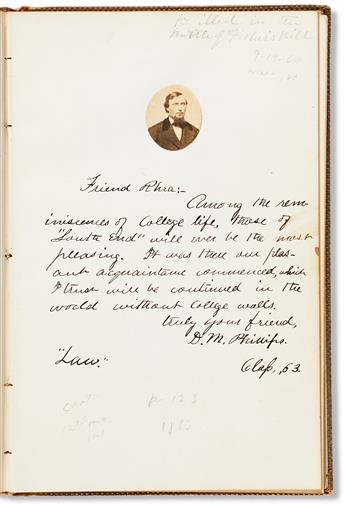 Killed in the
battle of Fisher's Hill
9-19-64
Friend Rhra:-
Among the rem-
iniscences of College life, those of
"South End" will ever be the most
pleasing. It was there our pleas-
ant acquaintance commenced, which
I trust will be continued in the
world without College walls.
Truly your friend,
D. M. Phillips.
"Law."
Class, 63.
p 123
Capt